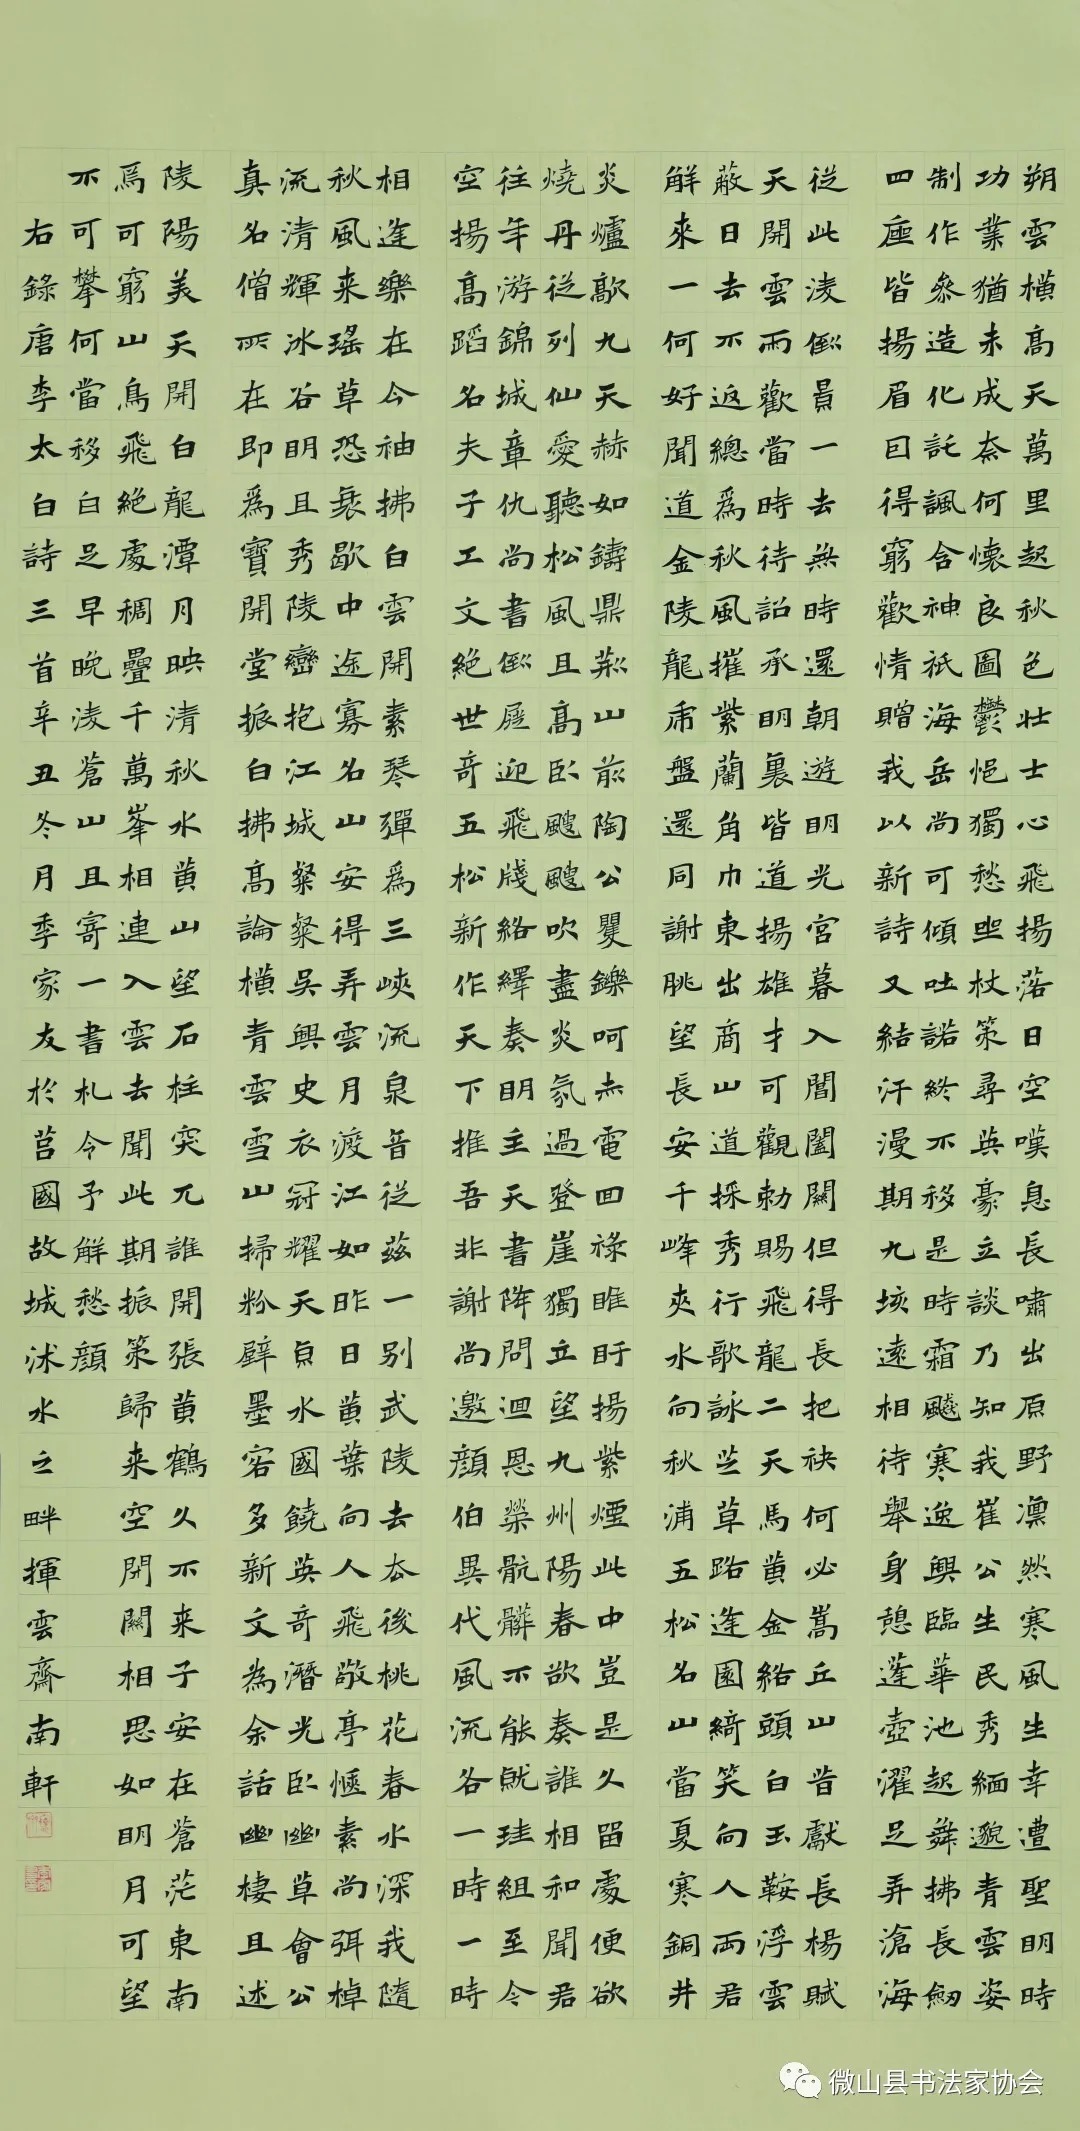 朔雲橫高天萬里起秋色壯士心飛揚落日空嘆息長嘯出原野凛然寒風生幸遭聖明時
功業猶未成奈何懷良圖鬱悒獨愁坐杖策尋英豪立談乃知我崔公生民秀緬邈青雲姿
制作參造化託諷含神祇海岳尚可傾吐諾終不移是時霜飈寒逸興臨華池起舞拂長劒
四座皆揚眉因得窮歡情贈我以新詩又結汗漫期九垓遠相待舉身憩蓬壺濯足弄滄海
從此淩倒景一去無時還朝遊明光宮暮入閶闔關但得長把袂何必嵩丘山昔獻長楊賦
天開雲雨歡當時待詔承明裏皆道揚雄才可觀勅賜飛龍二天馬黃金絡頭白玉鞍浮雲
蔽日去不返總為秋風摧紫蘭角巾東出商山道採秀行歌詠芝草路逢園綺笑向人兩君
解來一何好聞道金陵龍虎盤還同謝朓望長安千峰夾水向秋浦五松名山當夏寒銅井
炎爐歊九天赫如鑄鼎荊山前陶公矍鑠呵赤電回祿睢盱揚紫煙此中豈是久留處便欲
燒丹從列仙愛聽松風且高臥颼颼吹盡炎氛過登崖獨立望九州陽春欲奏誰相和聞君
往年游錦城章仇尚書倒屣迎飛牋絡繹奏明主天書降問迴恩榮骯髒不能就珪組至今
空揚高蹈名夫子工文絕世奇五松新作天下推吾非謝尚邀顏伯異代風流各一時一時
相逢樂在今袖拂白雲開素琴彈為三峽流泉音從茲一別武陵去去後桃花春水深我隨
秋風来瑤草恐衰歇中途寡名山安得弄雲月渡江如昨日黃葉向人飛敬亭愜素尚弭棹
流清輝冰谷明且秀陵巒抱江城粲粲吳興史衣冠耀天京水國饒英奇潛光臥幽草會公
真名僧所在即為寶開堂振白拂高論橫青雲雪山掃粉壁墨客多新文為余話幽棲且述
陵陽美天開白龍潭月映清秋水黃山望石柱突兀誰開張黃鶴久不来子安在蒼茫東南
焉可窮山鳥飛絕處稠疊千萬峯相連入雲去聞此期振策歸来空閉關相思如明月可望
不可攀何當移白足早晚淩蒼山且寄一書札令予解愁顏
右錄唐李太白詩三首辛丑冬月季家友於莒國故城沭水之畔揮雲齋南軒
微山县书法家协会